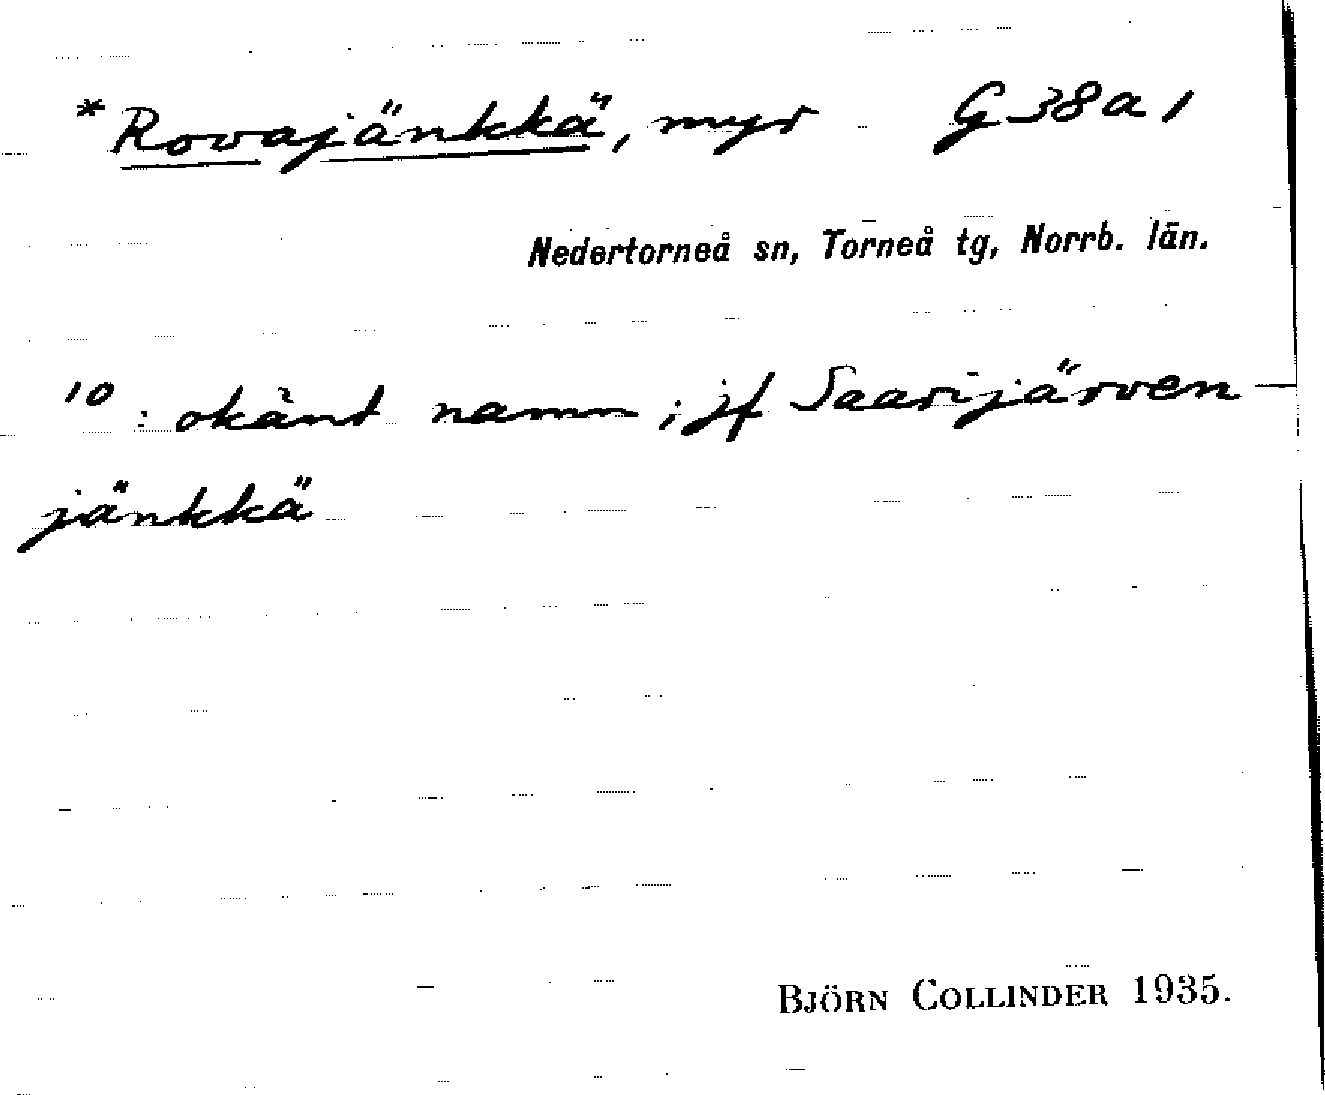 *Rovajänkkä, myr G 38 a 1
Nedertorneå sn, Torneå tg, Norrb. län.
10 : okänt namn ; jf Saarijärven-
jänkkä
BJÖRN COLLINDER 1935.